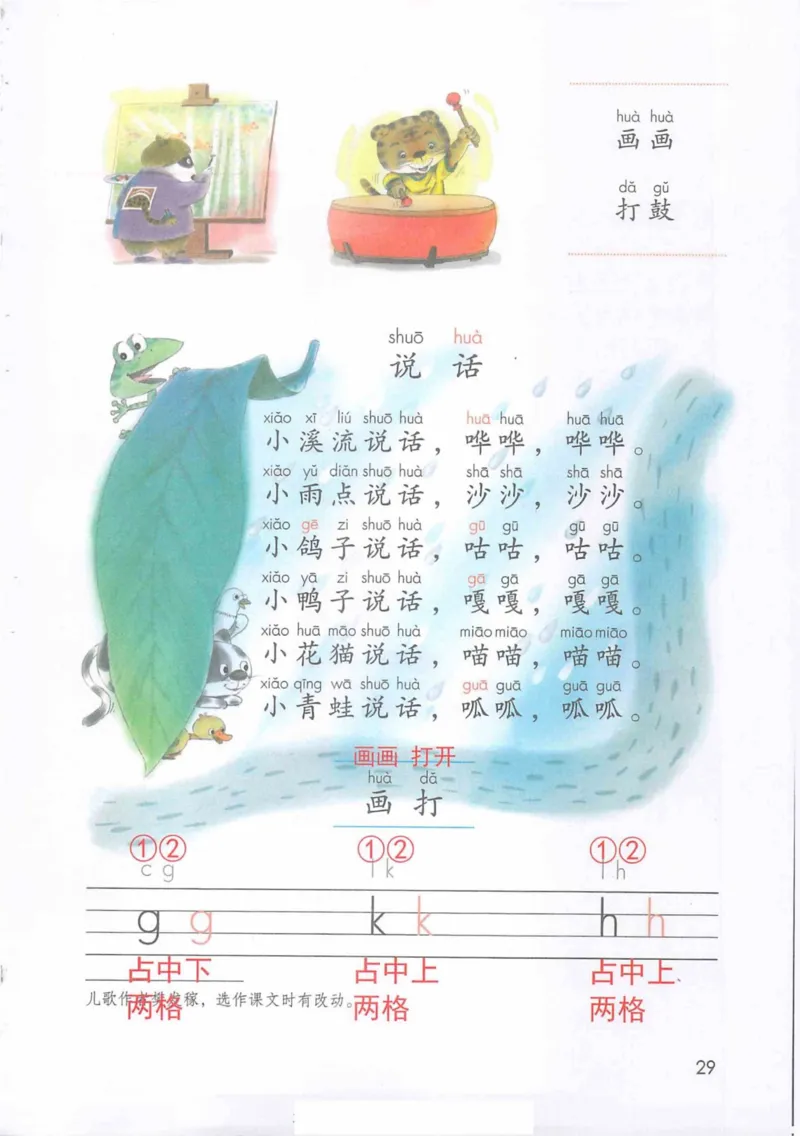 huà huà
画画
dǎ gǔ
打鼓
shuō huà
说话
xiǎo xī liú shuō huà huā huā huā huā
小溪流说话，哗哗，哗哗。
xiǎo yǔ diǎn shuō huà shā shā shā shā
小雨点说话，沙沙，沙沙。
xiǎo gē zi shuō huà gū gū gū gū
小鸽子说话，咕咕，咕咕。
xiǎo yā zi shuō huà gā gā gā gā
小鸭子说话，嘎嘎，嘎嘎。
xiǎo huā māo shuō huà miāo miāo miāo miāo
小花猫说话，喵喵，喵喵。
xiǎo qīng wā shuō huà guā guā guā guā
小青蛙说话，呱呱，呱呱。
画画 打开
huà dǎ
画打
①② ①② ①②
c g l k l h
g g k k h h
占中下 占中上 占中上、
儿歌作 稼，选作课文时有改动。
两格 两格 两格
29